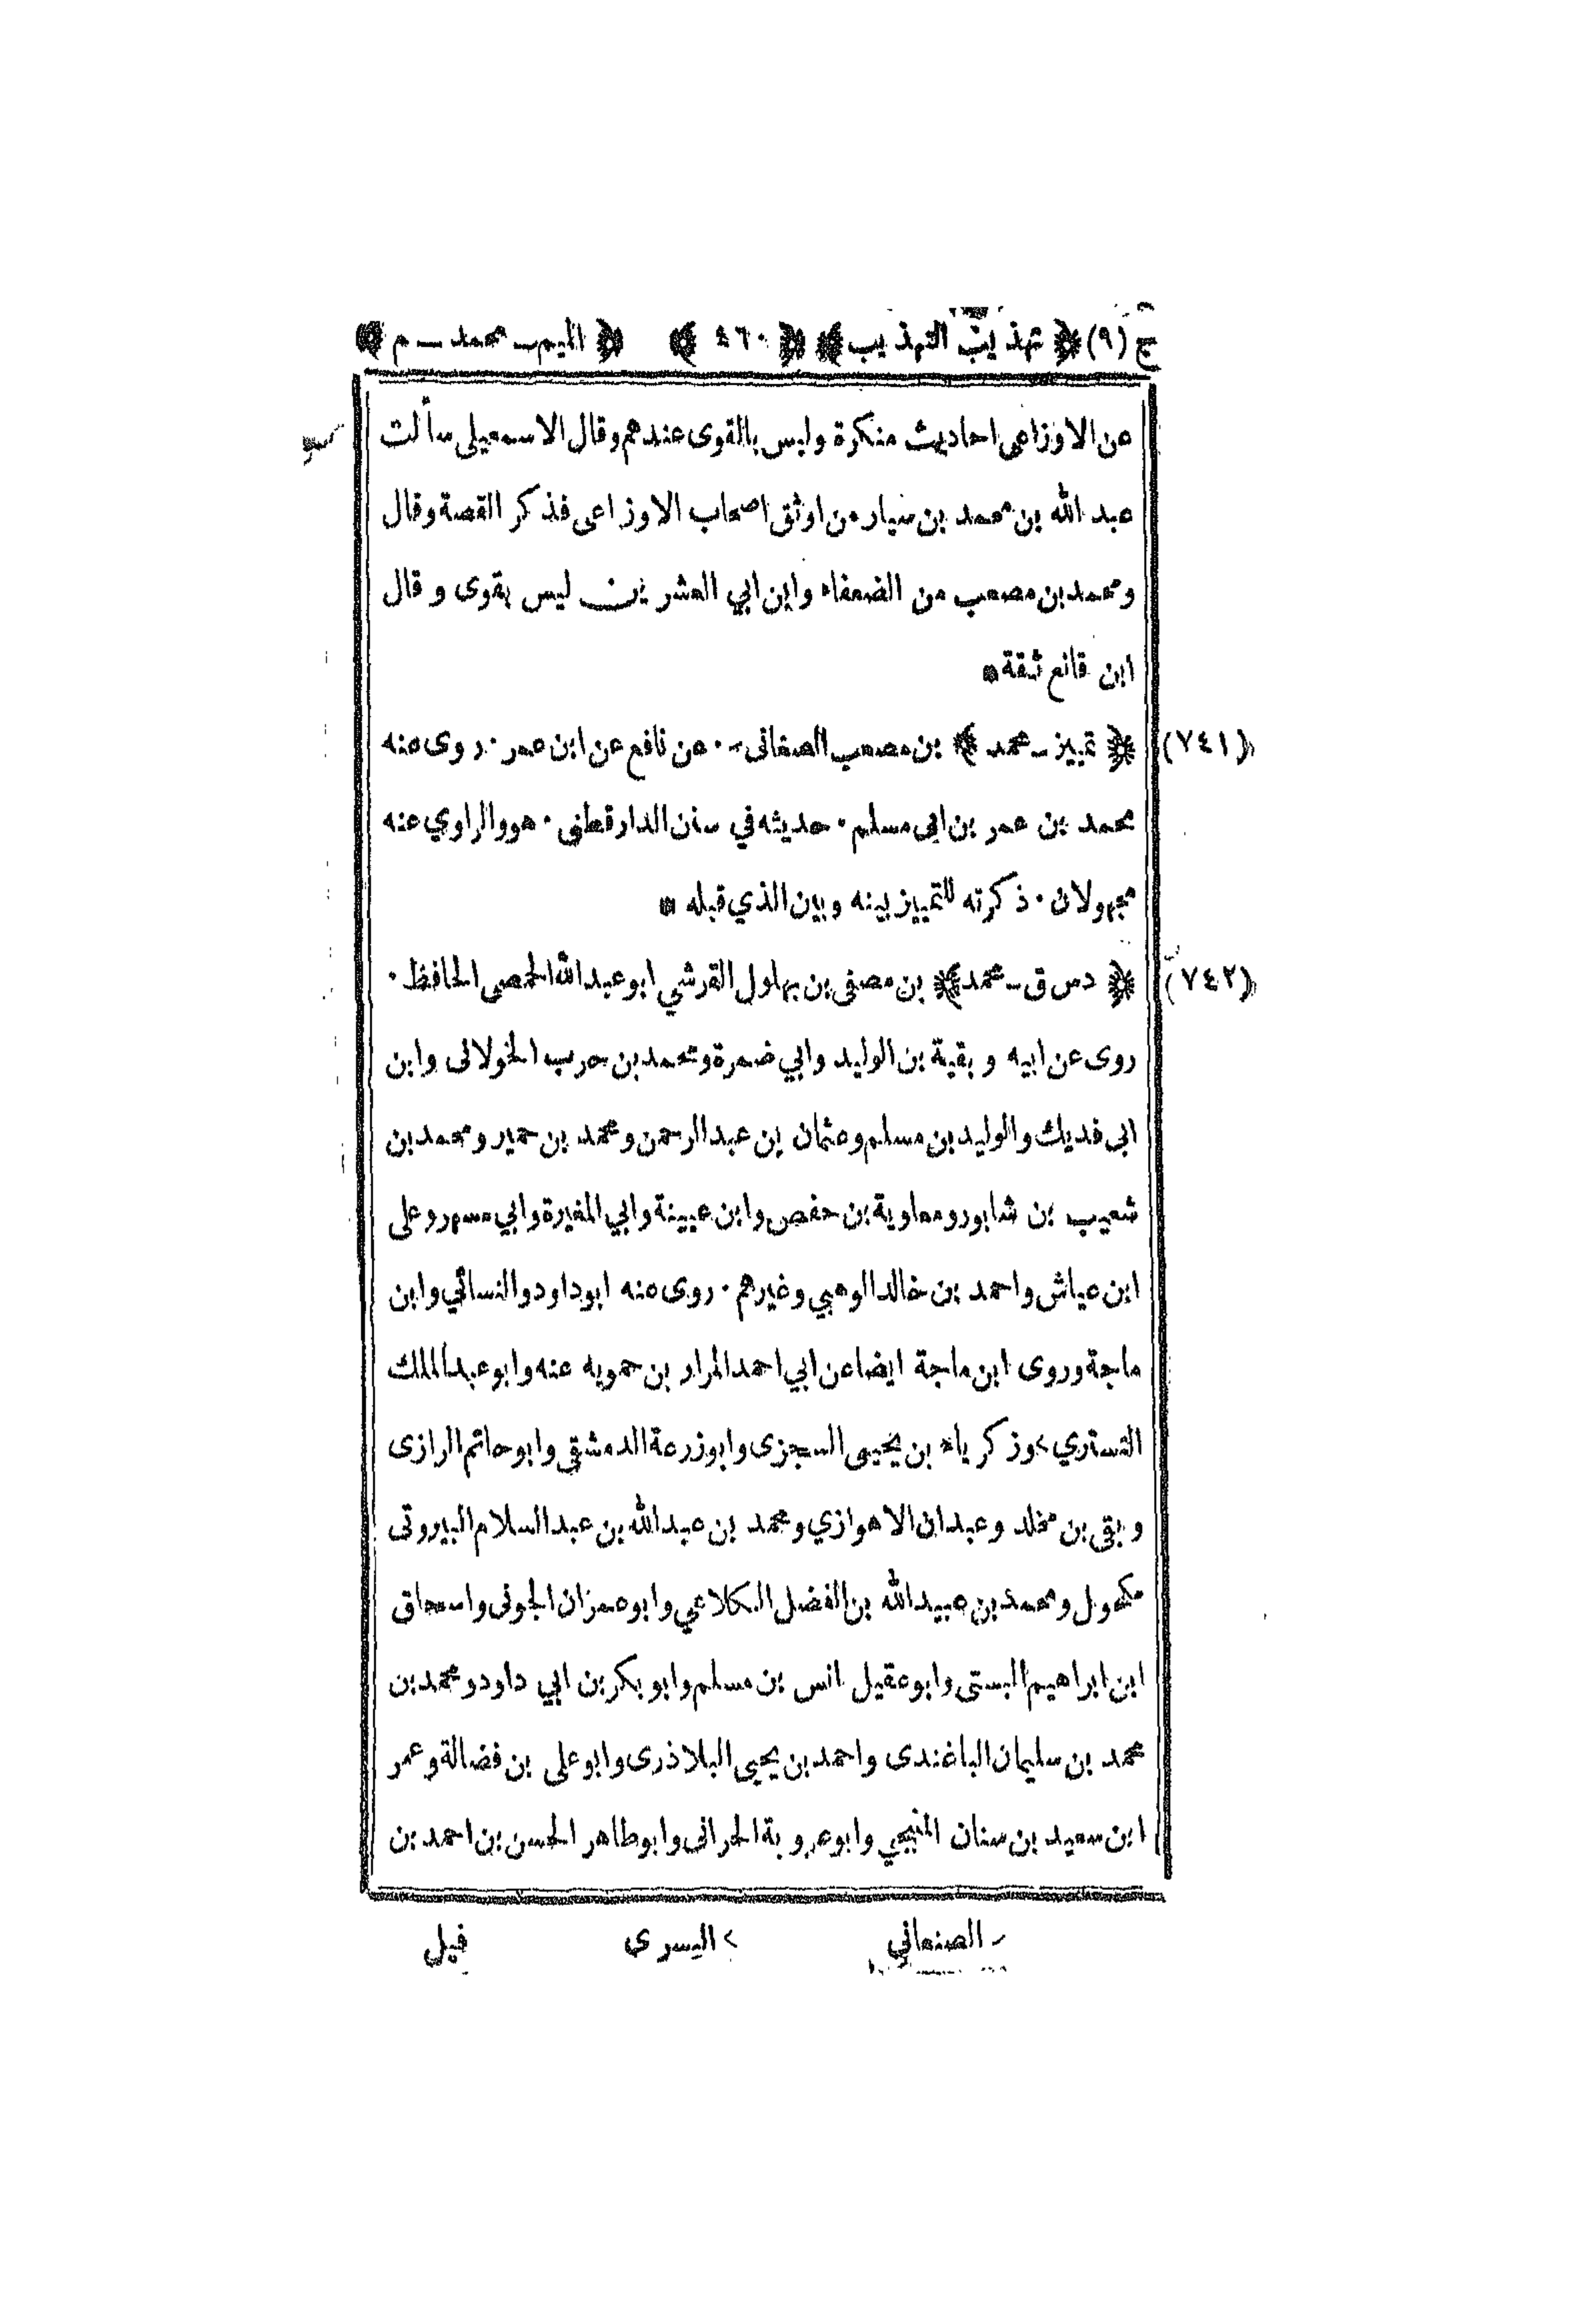 ج (٩) ﴿ تهذيب التهذيب ﴾ ﴿ ٤٦٠ ﴾ ﴿ الميم ـ محمد ـ م ﴾
عن الاوزاعى احاديث منكرة وليس بالقوى عندهم وقال الاسمعيلى سألت
عبد الله بن محمد بن سيار من اوثق اصحاب الاوزاعى فذكر القصة وقال
ومحمد بن مصعب من الضعفاء وابن ابي العشرين ليس بقوى وقال
ابن قانع ثقة *
(٧٤١) ﴿ تمييز ـ محمد ﴾ بن مصعب الصغانى ـ ٠ عن نافع عن ابن عمر ٠ روى عنه
محمد بن عمر بن ابى مسلم ٠ حديثه في سنن الدارقطنى ٠ هو والراوي عنه
مجهولان ٠ ذكرته للتمييز بينه وبين الذي قبله *
(٧٤٢) ﴿ د س ق ـ محمد ﴾ بن مصفى بن بهلول القرشي ابو عبد الله الحمصى الحافظ ٠
روى عن ابيه وبقية بن الوليد وابي ضمرة ومحمد بن حرب الخولانى وابن
ابى فديك والوليد بن مسلم وعثمان بن عبد الرحمن ومحمد بن حمير ومحمد بن
شعيب بن شابور ومعاوية بن حفص وابن عيينة وابي المغيرة وابي مسهر وعلى
ابن عياش واحمد بن خالد الوهبي وغيرهم ٠ روى عنه ابو داود والنسائي وابن
ماجة وروى ابن ماجة ايضا عن ابي احمد المرار بن حمويه عنه وابو عبد الملك
التستري > وزكرياء بن يحيى السجزى وابو زرعة الدمشقي وابو حاتم الرازى
وبقى بن مخلد وعبدان الاهوازي ومحمد بن عبد الله بن عبد السلام البيروتى
مكحول ومحمد بن عبيد الله بن الفضل الكلاعي وابو عمران الجونى واسحاق
ابن ابراهيم البستى وابو عقيل انس بن مسلم وابو بكر بن ابي داود ومحمد بن
محمد بن سليمان الباغندى واحمد بن يحيى البلاذرى وابو على بن فضالة وعمر
ابن سعيد بن سنان المنبجي وابو عروبة الحرانى وابو طاهر الحسن بن احمد بن
ـ الصنعاني > اليسرى فيل